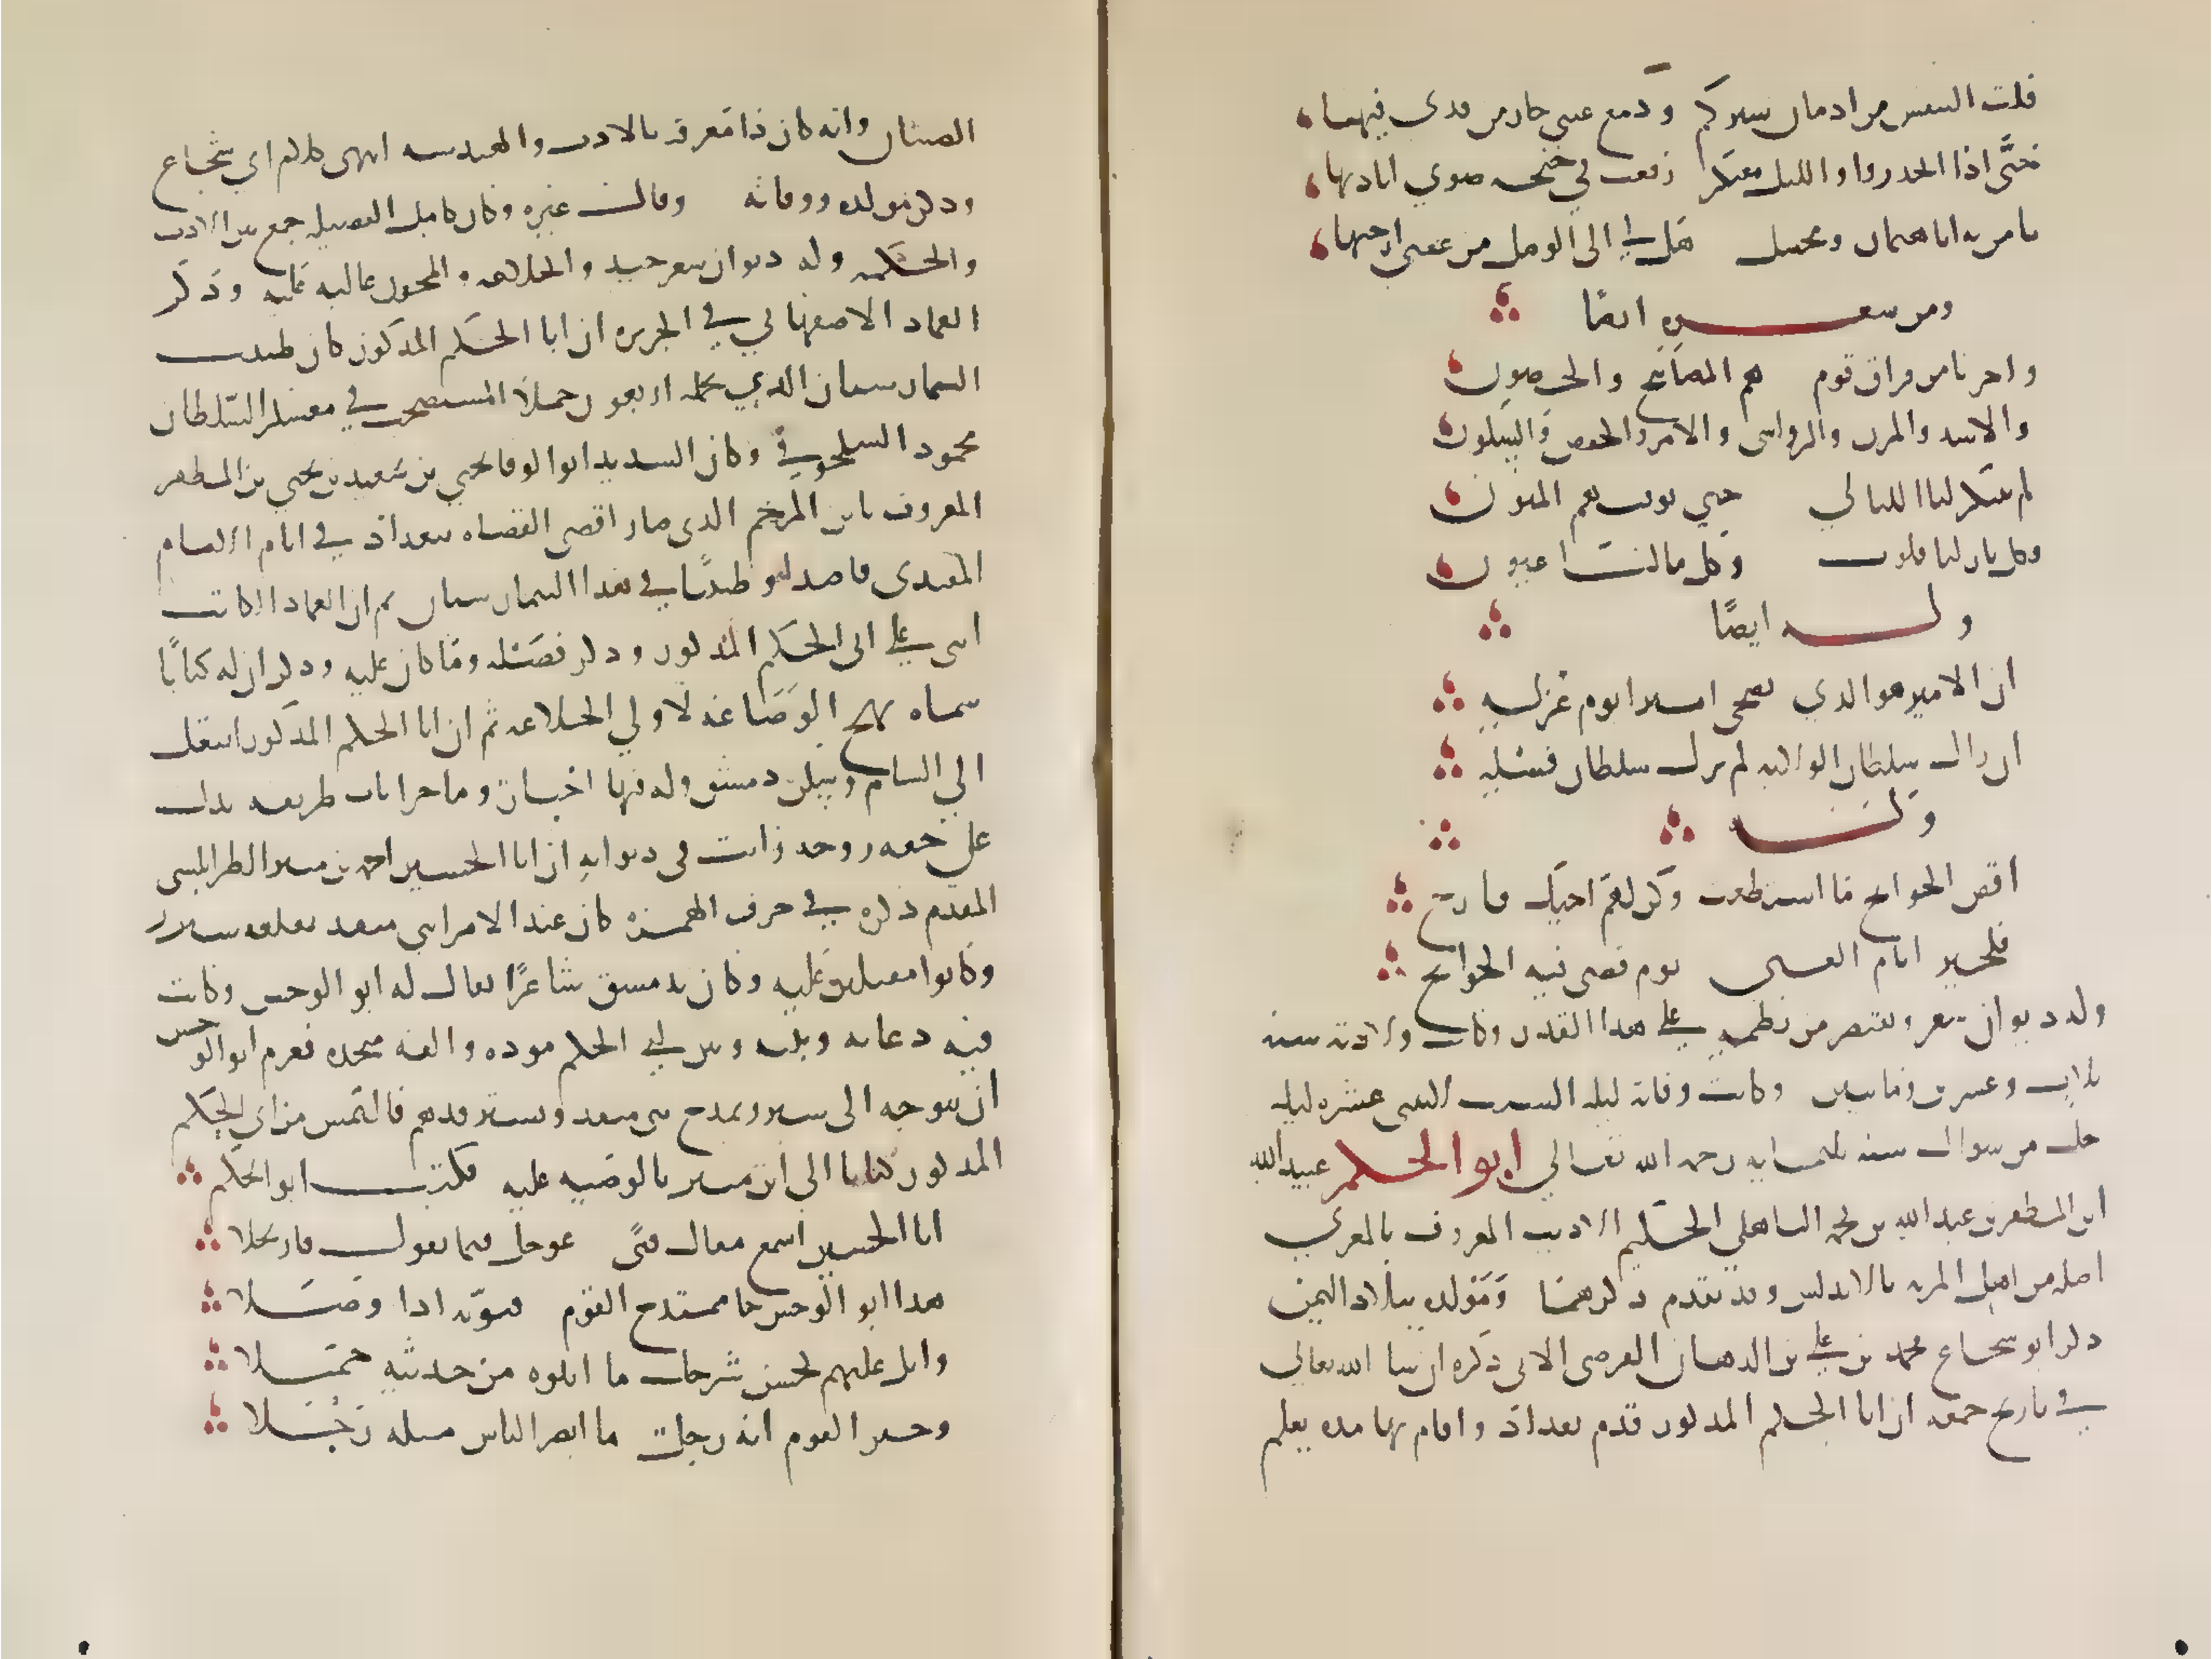 قلت النفس من ادمان سيركم ودمع عيني جار من قذى فيها
حتى اذا انحدروا والليل معتكر رفعت في جنحه صوتي اناديها
يا من به انا هيمان ومختبل هل لي الى الوصل من عقبى ارجيها
ومن شعره ايضا
واحربا من فراق قوم هم المصابيح والحصون
والاسد والمزن والرواسي والامن والخفض والسكون
لم تتنكر لنا الليالي حتى توفتهم المنون
وكل نار لنا قلوب وكل ما لنا عيون
وله ايضًا
ان الامير هو الذي يضحي اميرا يوم عزله
ان زال سلطان الولاية لم يزل سلطان فضله
وله
اقض الحوائج ما استطعت وكن لهم اخيك فارج
فلخير ايام الفتى يوم قضى فيه الحوائج
وله ديوان شعر ونقتصر من نظمه على هذا القدر وكانت ولادته سنه
ثلاث وعشرين ومايتين وكانت وفاته ليله السبت لاثنتي عشره ليله
خلت من شوال سنه ثلثمايه رحمه الله تعالى ابو الحكم عبيد الله
ابن المظفر بن عبد الله بن محمد الباهلي الحكيم الاديب المعروف بالمغربي
اصله من اهل المريه بالاندلس وقد تقدم ذكرهما ومولده ببلاد اليمن
ذكر ابو شجاع محمد بن علي بن الدهان الفرضي الاتي ذكره ان شا الله تعالى
في تاريخ جمعه ان ابا الحكم المذكور قدم بغداد واقام بها مده يعلم
الصبيان وانه كان ذا معرفه بالادب والهندسه انتهى كلام ابي شجاع
وذكر مولده ووفاته وقال غيره وكان كامل الفضيله جمع بين الادب
والحكمه وله ديوان شعر جيد والخلاعه والمجون غالبه عليه وذكر
العماد الاصفهاني في الخريده ان ابا الحكم المذكور كان طبيب
البيمارستان الذي يحمله اربعون جملا المستصحب في معسكر السلطان
محمود السلجوقي وكان السديد ابو الوفا يحيى بن سعيد بن يحيى بن المظفر
المعروف بابن المرخم الذي صار اقضى القضاه ببغداد في ايام الامام
المقتدى فاصدا وطبيبا في هذا البيمارستان ثم ان العماد الكاتب
اثنى على ابي الحكم المذكور وذكر فضله وما كان عليه وذكر ان له كتابًا
سماه نهج الوضاعه لاولي الخلاعه ثم ان ابا الحكم المذكور انتقل
الى الشام وسكن دمشق وله فيها اخبار وماجرايات ظريفه تدل
على خفه روحه رايت في ديوانه ان ابا الحسين احمد بن منير الطرابلسي
المقدم ذكره في حرف الهمزه كان عند الامرا بني منقذ بقلعه شيزر
وكانوا مقبلين عليه وكان بدمشق شاعرًا يقال له ابو الوحش وكانت
فيه دعابه وبينه وبين ابي الحكم موده والفه متحده فعزم ابو الوحش
ان يتوجه الى شيزر يمدح بني منقذ ويسترفدهم فالتمس من ابي الحكم
المذكور كتابا الى ابن منير بالوصيه عليه فكتب ابو الحكم
ابا الحسين اسمع مقال فتى عوجل فيما يقول فارتجلا
هذا ابو الوحش جا ممتدح القوم فنوه به اذا وصلا
واتل عليهم لحسن شرحك ما اتلوه من حديثه جملا
وخبر القوم انه رجل ما ابصر الناس مثله رجلا